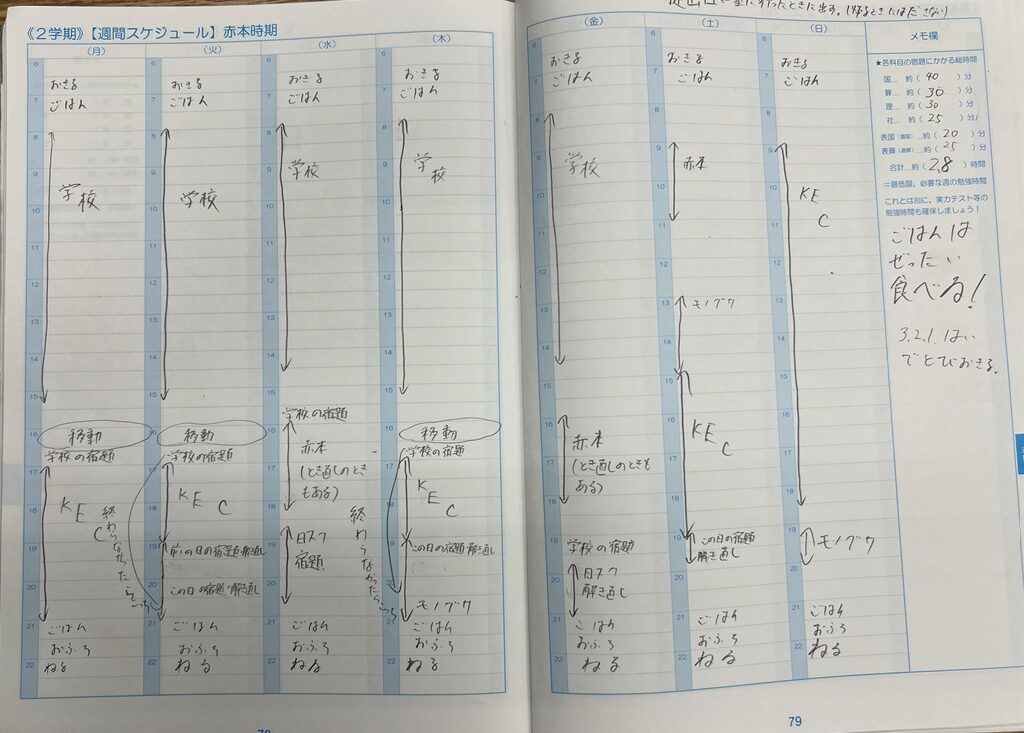 《2学期》【週間スケジュール】赤本時期
(月)
6
おきる
7
ごはん
8
9
学校
10
11
12
13
14
15
16
移動
学校の宿題
17
KEC
18
終わらなかったらこっち
19
20
21
ごはん
おふろ
22
ねる
(火)
おきる
7
ごはん
8
9
学校
10
11
12
13
14
15
移動
学校の宿題
17
KEC
18
19
前の日の宿題・解き直し
20
この日の宿題・解き直し
21
ごはん
おふろ
22
ねる
(水)
6
おきる
7
ごはん
8
9
学校
10
11
12
13
14
15
学校の宿題
16
赤本
(とき直しのとき
もある)
17
18
19
日スク
宿題
20
21
ごはん
おふろ
22
ねる
(木)
6
おきる
7
ごはん
8
学校
9
10
11
12
13
14
15
16
移動
学校の宿題
17
KEC
18
終わらなかったらこっち
19
この日の宿題・解き直し
20
モノグサ
21
ごはん
おふろ
22
ねる
(金)
6
おきる
7
ごはん
8
9
学校
10
11
12
13
14
15
16
赤本
(とき直しのときも
ある)
17
18
19
学校の宿題
20
日スク
解き直し
21
ごはん
おふろ
22
ねる
(土)
6
おきる
7
ごはん
8
9
赤本
10
11
12
13
モノグサ
14
15
16
KEC
17
18
19
この日の宿題
解き直し
20
21
ごはん
おふろ
22
ねる
(日)
6
おきる
7
ごはん
8
9
KEC
10
11
12
13
14
15
16
17
18
19
モノグサ
20
21
ごはん
おふろ
22
ねる
メモ欄
★各科目の宿題にかかる総時間
国… 約( 40 )分
算… 約( 30 )分
理… 約( 30 )分
社… 約( 25 )分
表国(通国)…約( 20 )分
表算(通算)…約( 25 )分
合計…約( 2.8 )時間
=最低限、必要な週の勉強時間
これとは別に、実力テスト等の
勉強時間も確保しましょう!
ごはんは
ぜったい
食べる!
3.2.1.はい
でとびおきる。
79